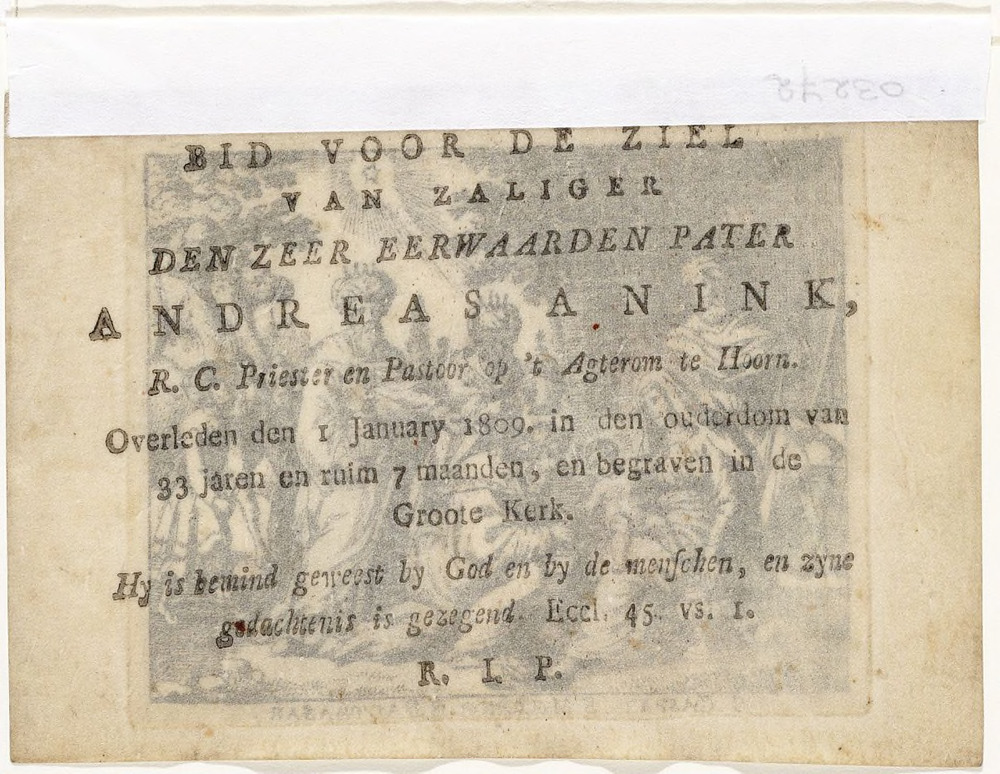 03272
BID VOOR DE ZIEL
VAN ZALIGER
DEN ZEER EERWAARDEN PATER
ANDREAS ANINK,
R. C. Priester en Pastoor op 't Agterom te Hoorn.
Overleden den 1 January 1809. in den ouderdom van
33 jaren en ruim 7 maanden, en begraven in de
Groote Kerk.
Hy is bemind geweest by God en by de menſchen, en zyne
gedachtenis is gezegend. Eccl. 45. vs. 1.
R. I. P.